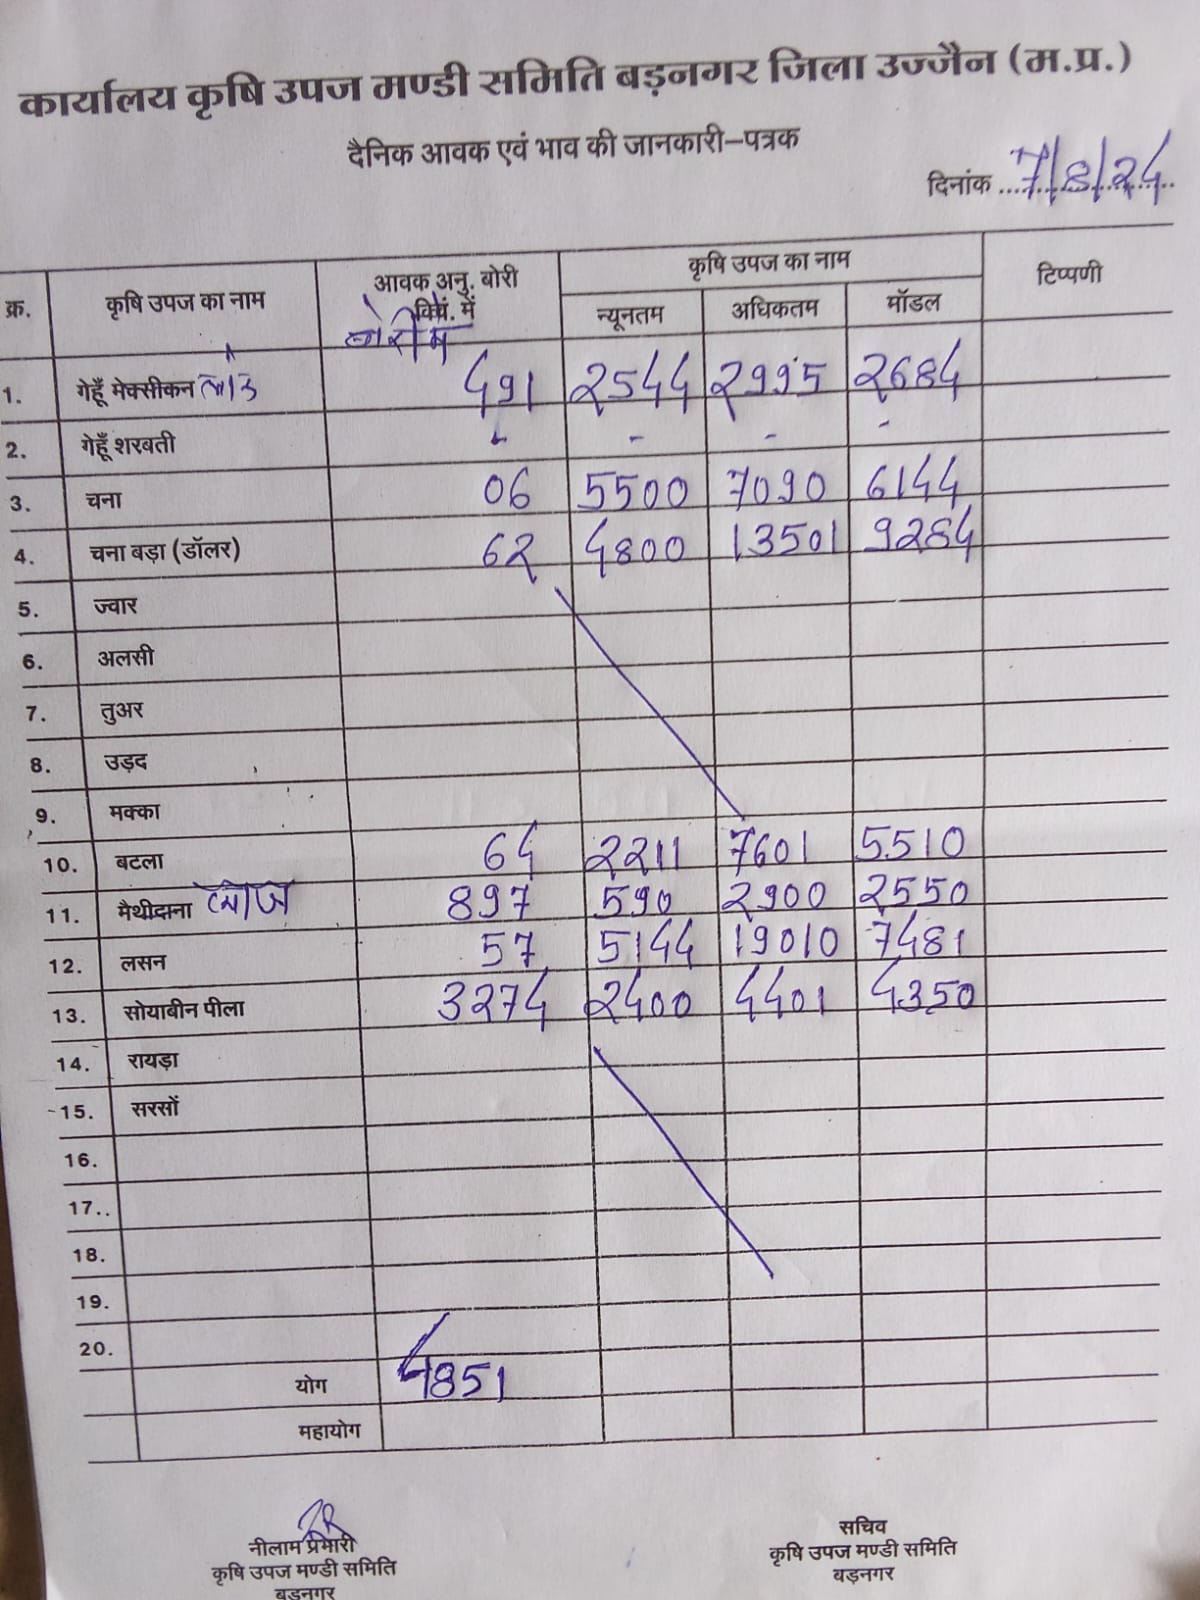 कार्यालय कृषि उपज मण्डी समिति बड़नगर जिला उज्जैन (म.प्र.)
दैनिक आवक एवं भाव की जानकारी-पत्रक
दिनांक 7/8/24
क्र. कृषि उपज का नाम आवक अनु. बोरी क्विं. में कृषि उपज का नाम टिप्पणी
बोरी में न्यूनतम अधिकतम मॉडल
1. गेहूँ मेक्सीकन 491 2544 2995 2684
2. गेहूँ शरबती - - - -
3. चना 06 5500 7090 6144
4. चना बड़ा (डॉलर) 62 4800 13501 9284
5. ज्वार
6. अलसी
7. तुअर
8. उड़द
9. मक्का
10. बटला 64 2211 7601 5510
11. मैथीदाना 897 590 2900 2550
12. लसन 57 5144 19010 7481
13. सोयाबीन पीला 3274 2400 4401 4350
14. रायड़ा
15. सरसों
16.
17..
18.
19.
20.
योग 4851
महायोग
नीलाम प्रभारी
कृषि उपज मण्डी समिति
बड़नगर
सचिव
कृषि उपज मण्डी समिति
बड़नगर